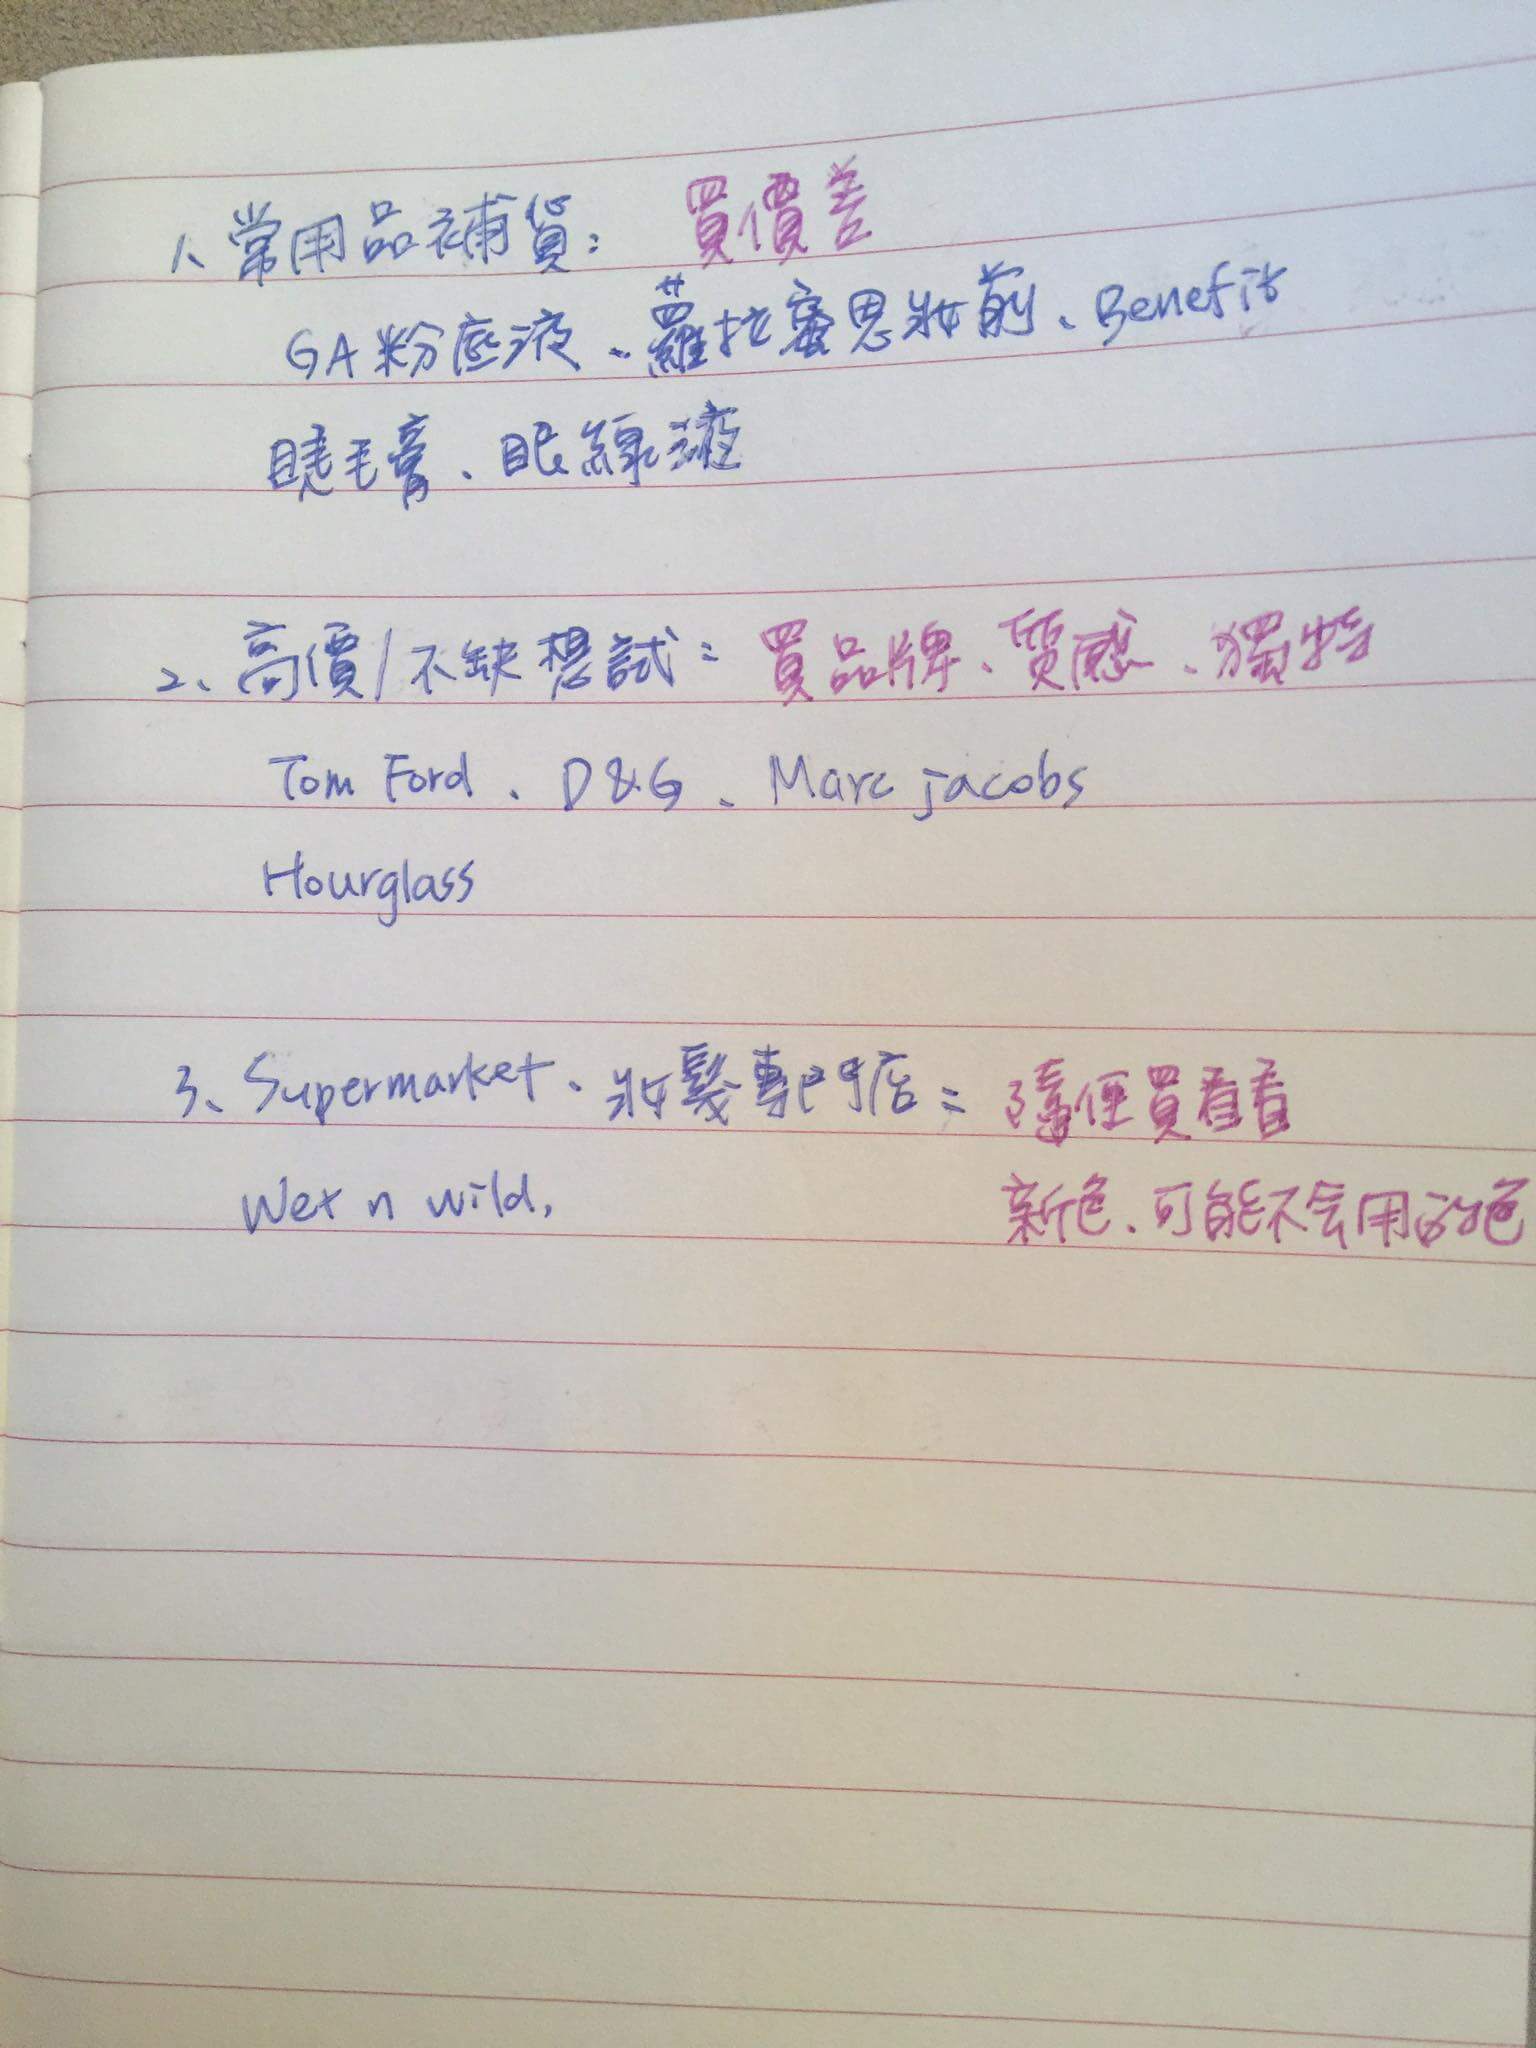 1、常用品補貨： 買價差
GA粉底液、蘿拉蜜思妝前、Benefit
睫毛膏、眼線液
2、高價/不缺想試： 買品牌、質感、獨特
Tom Ford、D&G、Marc jacobs
Hourglass
3、Supermarket、妝髮專門店： 隨便買看看
Wet n wild, 新色、可能不会用的色